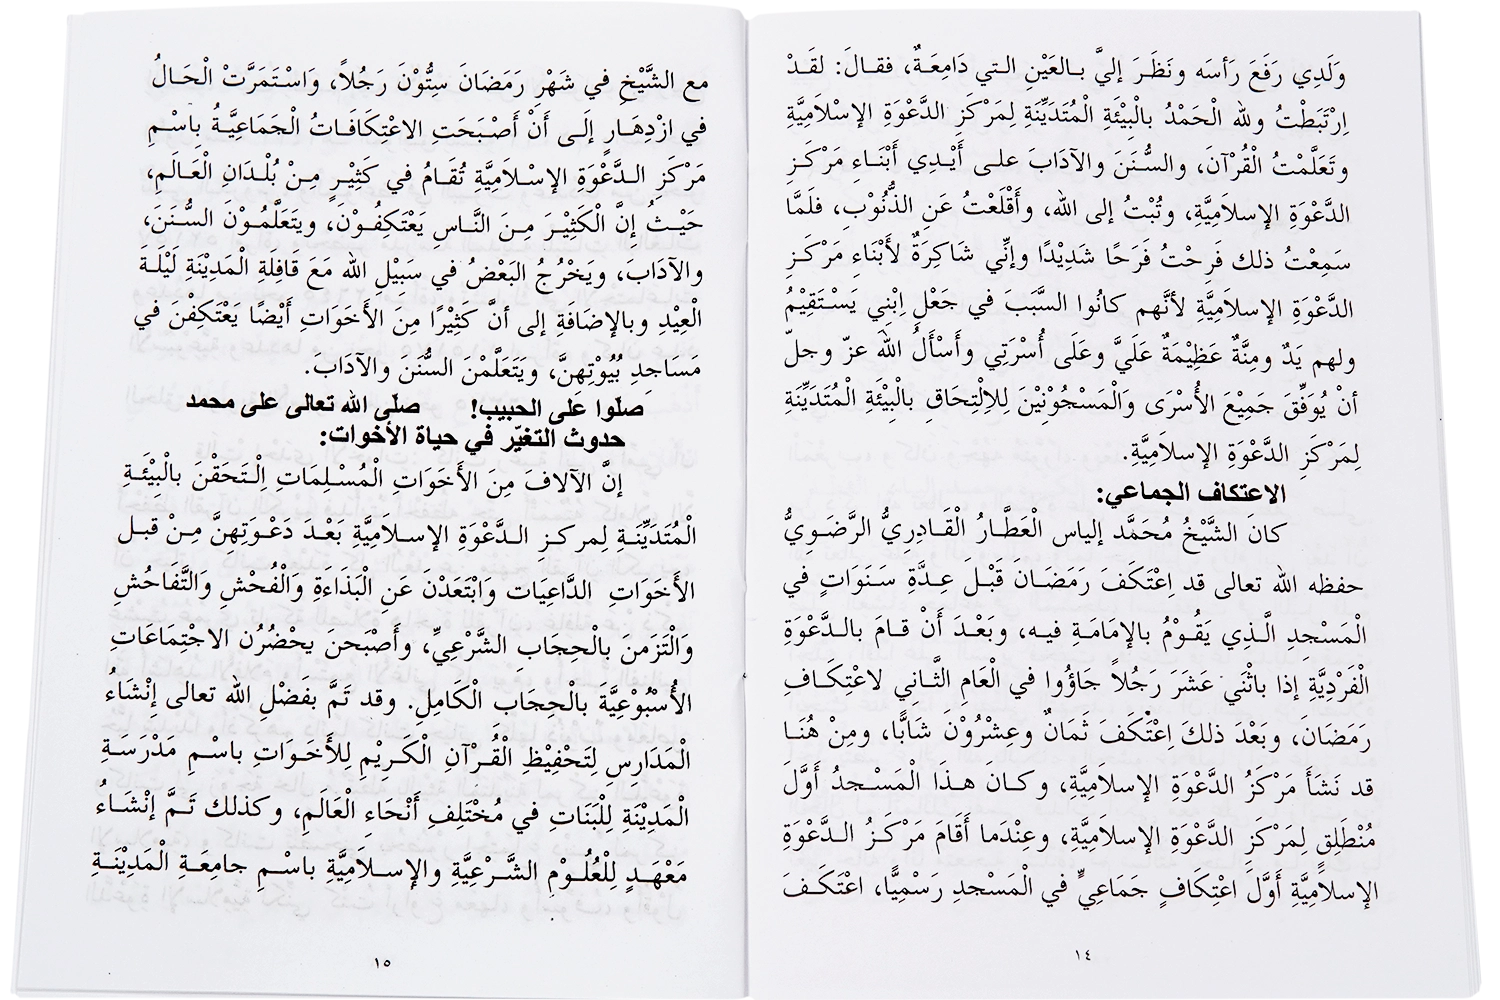 وَلَدِي رَفَعَ رَأسَه ونَظَرَ إليَّ بـالعَيْنِ التي دَامِعَةٌ، فقالَ: لقَدْ
اِرْتَبَطْتُ وللهِ الْحَمْدُ بالْبِيْئَةِ الْمُتَدَيِّنَةِ لِمَرْكَزِ الدَّعْوَةِ الإسْلاَمِيَّةِ
وتَعَلَّمْتُ الْقُرْآنَ، والسُّنَنَ والآدَابَ على أَيْدِي أَبْنَاءِ مَرْكَزِ
الدَّعْوَةِ الإسلاَمِيَّةِ، وتُبْتُ إلى الله، وأَقْلَعْتُ عَنِ الذُّنُوْبِ، فلَمَّا
سَمِعْتُ ذلك فَرِحْتُ فَرَحًا شَدِيْدًا وإنِّي شَاكِرَةٌ لأَبْنَاءِ مَرْكَزِ
الدَّعْوَةِ الإسْلاَمِيَّةِ لأنَّهم كانُوا السَّبَبَ في جَعْلِ اِبْنِي يَسْتَقِيْمُ
ولهم يَدٌ ومِنَّةٌ عَظِيْمَةٌ عَلَيَّ وعَلَى أُسْرَتِي وأَسْأَلُ اللهَ عزّ وجلّ
أنْ يُوَفِّقَ جَمِيْعَ الأَسْرَى وَالْمَسْجُوْنِيْنَ لِلاِلْتِحَاقِ بالْبِيْئَةِ الْمُتَدَيِّنَةِ
لِمَرْكَزِ الدَّعْوَةِ الإسْلاَمِيَّةِ.
الاعتكاف الجماعي:
كانَ الشَّيْخُ مُحَمَّد إلياس الْعَطَّارُ الْقَادِرِيُّ الرَّضَوِيُّ
حفظه الله تعالى قد اِعْتَكَفَ رَمَضَانَ قَبْلَ عِدَّةِ سَنَوَاتٍ في
الْمَسْجِدِ الَّذِي يَقُوْمُ بالإمَامَةِ فيه، وبَعْدَ أَن قامَ بالدَّعْوَةِ
الْفَرْدِيَّةِ إذا باثْنَي عَشَرَ رَجُلاً جَاؤُوا في الْعَامِ الثَّانِي لاعْتِكَافِ
رَمَضَانَ، وبَعْدَ ذلكَ اِعْتَكَفَ ثَمَانٌ وعِشْرُوْنَ شَابًّا، ومِنْ هُنَا
قد نَشَأَ مَرْكَزُ الدَّعْوَةِ الإسلاَمِيَّةِ، وكانَ هذَا الْمَسْجدُ أَوَّلَ
مُنْطَلِقٍ لِمَرْكَزِ الدَّعْوَةِ الإسلاَمِيَّةِ، وعِنْدَما أَقَامَ مَرْكَزُ الدَّعْوَةِ
الإسلاَمِيَّةِ أَوَّلَ اعْتِكَافٍ جَمَاعِيٍّ في الْمَسْجدِ رَسْمِيًّا، اعْتَكَفَ
١٤
مع الشَّيْخِ في شَهْرِ رَمَضَانَ سِتُّوْنَ رَجُلاً، وَاسْتَمَرَّتْ الْحَالُ
في ازْدِهَارٍ إلَى أَنْ أَصْبَحَتِ الاعْتِكَافَاتُ الْجَمَاعِيَّةُ بِاسْمِ
مَرْكَزِ الدَّعْوَةِ الإسْلاَمِيَّةِ تُقَامُ في كَثِيْرٍ مِنْ بُلْدَانِ الْعَالَمِ،
حَيْثُ إنَّ الْكَثِيْرَ مِنَ النَّاسِ يَعْتَكِفُوْنَ، ويتَعَلَّمُوْنَ السُّنَنَ،
والآدَابَ، ويَخْرُجُ البَعْضُ في سَبِيْلِ اللهِ مَعَ قَافِلَةِ الْمَدِيْنَةِ لَيْلَةَ
الْعِيْدِ وبالإضَافَةِ إلى أنَّ كَثِيْرًا مِنَ الأَخَوَاتِ أَيْضًا يَعْتَكِفْنَ في
مَسَاجدِ بُيُوْتِهِنَّ، ويَتَعَلَّمْنَ السُّنَنَ والآدَابَ.
صلّوا على الحبيب! صلّى الله تعالى على محمد
حدوث التغيّر في حياة الأخوات:
إنَّ الآلافَ مِنَ الأَخَوَاتِ الْمُسْلِمَاتِ اِلْتَحَقْنَ بالْبِيْئَةِ
الْمُتَدَيِّنَةِ لِمركزِ الدَّعْوَةِ الإسلاَمِيَّةِ بَعْدَ دَعْوَتِهِنَّ مِنْ قبل
الأَخَوَاتِ الدَّاعِيَات وَابْتَعَدْنَ عَنِ الْبَذَاءَةِ وَالْفُحْشِ وَالتَّفَاحُشِ
وَالْتَزَمنَ بالْحِجَابِ الشَّرْعِيِّ، وأَصْبَحنَ يحْضُرْن الاجْتِمَاعَاتِ
الأُسْبُوْعِيَّةَ بالْحِجَابِ الْكَامِلِ. وقد تَمَّ بفَضْلِ اللهِ تعالى إنْشَاءُ
الْمَدَارِسِ لِتَحْفِيْظِ الْقُرْآنِ الْكَرِيْمِ لِلأَخَوَاتِ باسْمِ مَدْرَسَةِ
الْمَدِيْنَةِ لِلْبَنَاتِ في مُخْتَلِفِ أَنْحَاءِ الْعَالَمِ، وكذلك تَمَّ إنْشَاءُ
مَعْهَدٍ لِلْعُلُوْمِ الشَّرْعِيَّةِ والإسْلاَمِيَّةِ باسْمِ جامِعَةِ الْمَدِيْنَةِ
١٥